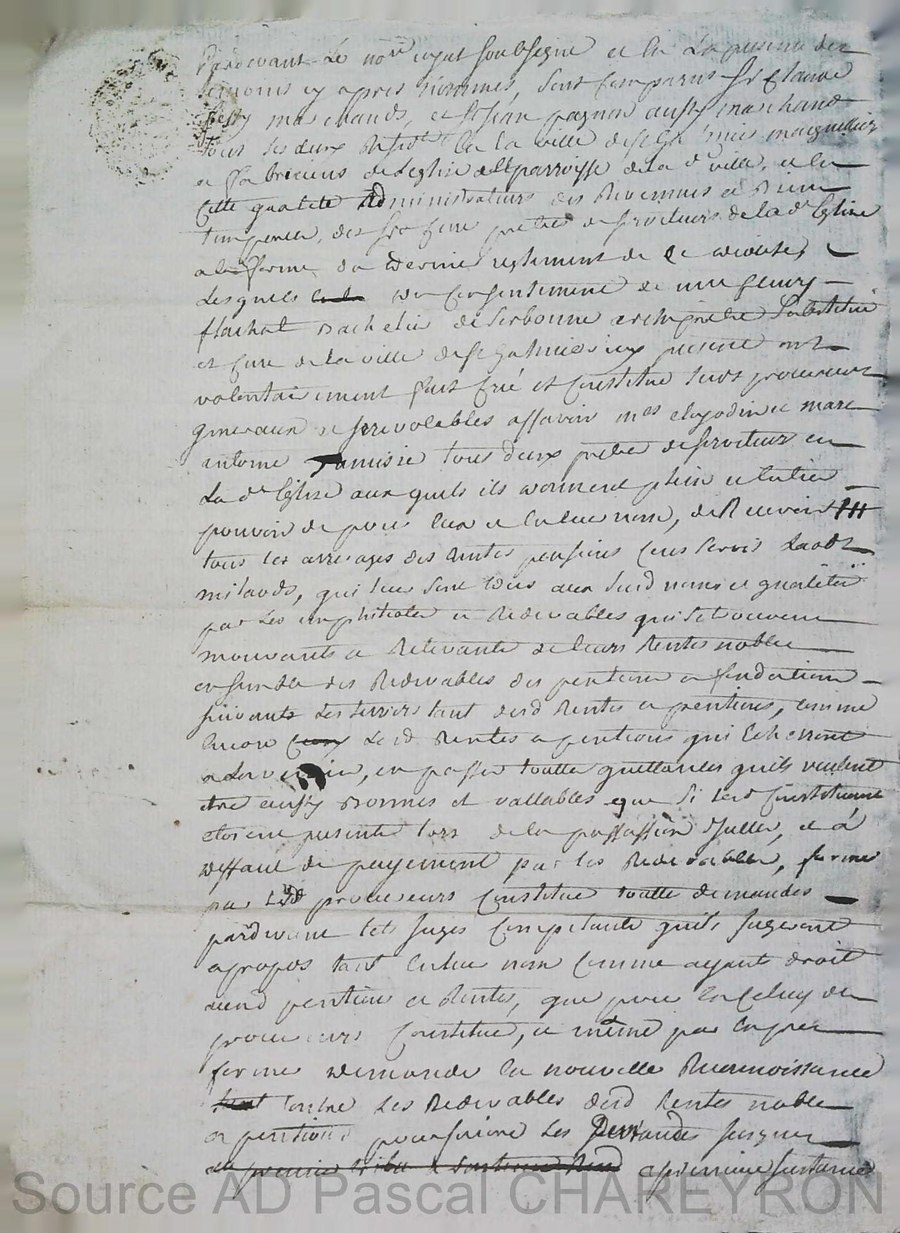 Pardevant Le no.re royal soubsigné et En La presence des
temoins cy apres nommes, sont Comparus Sr Claude
marchands, et Sr Jean pagnon aussy marchand
tous les deux de la ville de St Galmier marguilliers
et fabriciens de L'eglise et parroisse de la d. ville, et En
Cette qualité Administrateurs des Revennus et Biens
temporels des Srs Cure pretres desserviteurs de la de Eglise
a la forme du dernier reglement de
Lesquels du Consentement de
flachat Bachelier de Sorbonne archipretre
et Cure de la ville de St Galmier icy present ont
volontairement fait Créé et Constitué leurs procureurs
generaux et irrevocables assavoir mes et marc
antoine tous deux pretres desserviteurs en
La de Eglise aux quels ils donnent plein et entier
pouvoir de pour Eux et En leur nom, de Recevoir
tous les arrerages des Rentes pensions Cens Servis Laods
milaods, qui leur sont dus aux susd noms et qualités
par Les emphiteotes et Redevables qui se trouvent
mouvants et Relevants de leurs Rentes nobles
ensemble des Redevables des pentions et fondations
suivants Les terriers tant desd Rentes et pentions, comme
Encore Lesd Rentes et pentions qui Echerront
a Lavenir, en passer toutte quittances quils veulent
etre aussy Bonnes et vallables que si Lesd Constituants
etoient presents lors de la passassion d'Icelles, et à
deffaut de payement par les Redevables, former
par Lesd procureurs Constitué toutte demandes
pardevant tels Juges Competants quils Jugeront
apropos tant En leur nom Comme ayants droit
auxd pentions et Rentes, que pour En Celuy des
procureurs Constitué, et même par Exprès
former demande En nouvelle Reconnoissance
Contre Les Redevables desd Rentes nobles
et pentions poursuivre Les Demandes jusques
a premiere instance
Source AD Pascal CHAREYRON